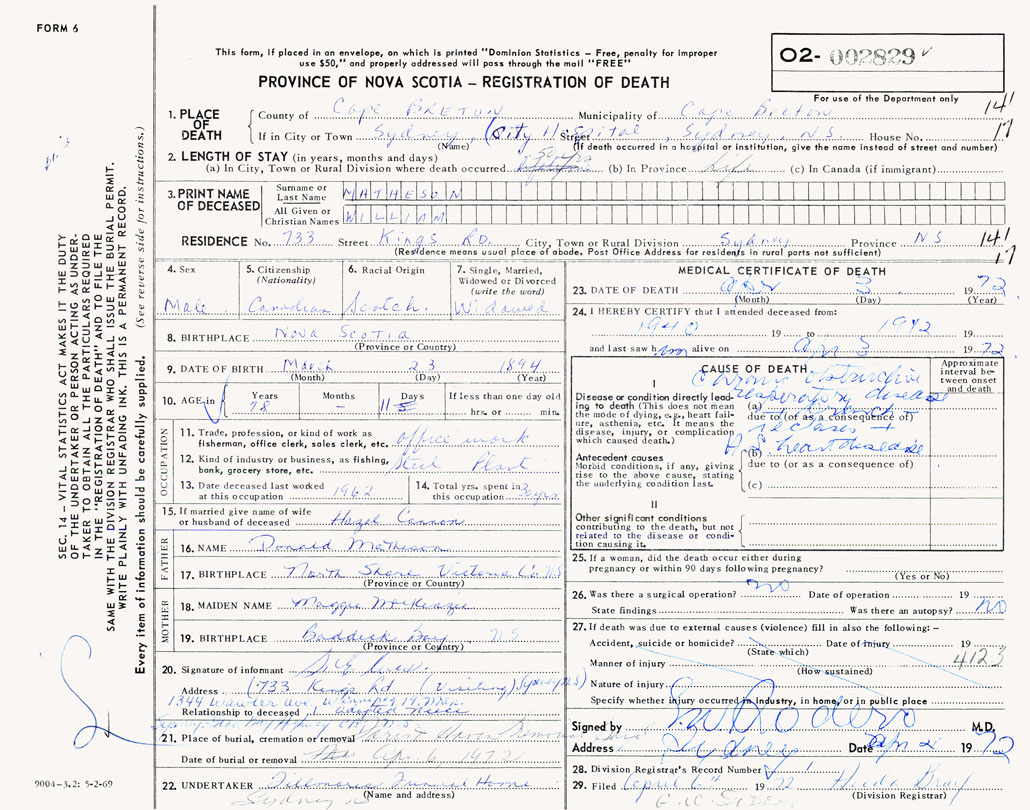 FORM 6
This form, if placed in an envelope, on which is printed "Dominion Statistics – Free, penalty for improper
use $50," and properly addressed will pass through the mail "FREE"
O2- 002829
PROVINCE OF NOVA SCOTIA – REGISTRATION OF DEATH
For use of the Department only
1. PLACE OF DEATH
County of Cape BRETON Municipality of Cape Breton 141
If in City or Town Sydney, (City Hospital, Sydney, N.S. Street House No. 17
(Name) (If death occurred in a hospital or institution, give the name instead of street and number)
2. LENGTH OF STAY (in years, months and days)
(a) In City, Town or Rural Division where death occurred 50 yrs (b) In Province Life (c) In Canada (if immigrant)
3. PRINT NAME OF DECEASED
Surname or Last Name MATHESON
All Given or Christian Names WILLIAM
RESIDENCE No. 733 Street Kings RD. City, Town or Rural Division Sydney Province N.S. 141
(Residence means usual place of abode. Post Office Address for residents in rural parts not sufficient) 17
4. Sex
Male
5. Citizenship (Nationality)
Canadian
6. Racial Origin
Scotch
7. Single, Married, Widowed or Divorced (write the word)
Widowed
8. BIRTHPLACE Nova Scotia
(Province or Country)
9. DATE OF BIRTH March 23 1894
(Month) (Day) (Year)
10. AGE in Years Months Days If less than one day old
78 – 11 hrs. or min.
OCCUPATION
11. Trade, profession, or kind of work as fisherman, office clerk, sales clerk, etc. office work
12. Kind of industry or business, as fishing, bank, grocery store, etc. Steel Plant
13. Date deceased last worked at this occupation 1962
14. Total yrs. spent in this occupation 30 yrs
15. If married give name of wife or husband of deceased Hazel Cannon
FATHER
16. NAME Donald Matheson
17. BIRTHPLACE North Shore Victoria Co N.S
(Province or Country)
MOTHER
18. MAIDEN NAME Maggie McKenzie
19. BIRTHPLACE Baddeck Bay N.S
(Province or Country)
20. Signature of informant
Address (733 Kings Rd (Visiting) Sydney N.S)
1344 Wawler ave, Winnipeg 19, Man.
Relationship to deceased adopted Niece
21. Place of burial, cremation or removal
Date of burial or removal Apr. 6, 1972
22. UNDERTAKER Fillmores Funeral Home
(Name and address)
Sydney NS
MEDICAL CERTIFICATE OF DEATH
23. DATE OF DEATH Apr 3 1972
(Month) (Day) (Year)
24. I HEREBY CERTIFY that I attended deceased from:
1940 19 to 1972 19
and last saw him alive on Apr 3 1972
CAUSE OF DEATH
Approximate interval between onset and death
I
Chronic obstructive
respiratory disease
Disease or condition directly leading to death (This does not mean the mode of dying, e.g., heart failure, asthenia, etc. It means the disease, injury, or complication which caused death.)
(a)
due to (or as a consequence of)
Antecedent causes
Morbid conditions, if any, giving rise to the above cause, stating the underlying condition last.
(b) heart disease
due to (or as a consequence of)
(c)
II
Other significant conditions contributing to the death, but not related to the disease or condition causing it.
25. If a woman, did the death occur either during pregnancy or within 90 days following pregnancy?
(Yes or No)
26. Was there a surgical operation? no Date of operation 19
State findings Was there an autopsy? NO
27. If death was due to external causes (violence) fill in also the following: –
Accident, suicide or homicide? Date of injury 19
(State which) 4123
Manner of injury
(How sustained)
Nature of injury
Specify whether injury occurred in Industry, in home, or in public place
Signed by M.D.
Address Sydney Date Apr 19 72
28. Division Registrar's Record Number
29. Filed April 6th 1972
(Division Registrar)
SEC. 14 – VITAL STATISTICS ACT MAKES IT THE DUTY
OF THE UNDERTAKER OR PERSON ACTING AS UNDER-
TAKER TO OBTAIN ALL THE PARTICULARS REQUIRED
IN THE "REGISTRATION OF DEATH" AND TO FILE THE
SAME WITH THE DIVISION REGISTRAR WHO SHALL ISSUE THE BURIAL PERMIT.
WRITE PLAINLY WITH UNFADING INK. THIS IS A PERMANENT RECORD.
Every item of information should be carefully supplied. (See reverse side for instructions.)
9004-3.2: 5-2-69